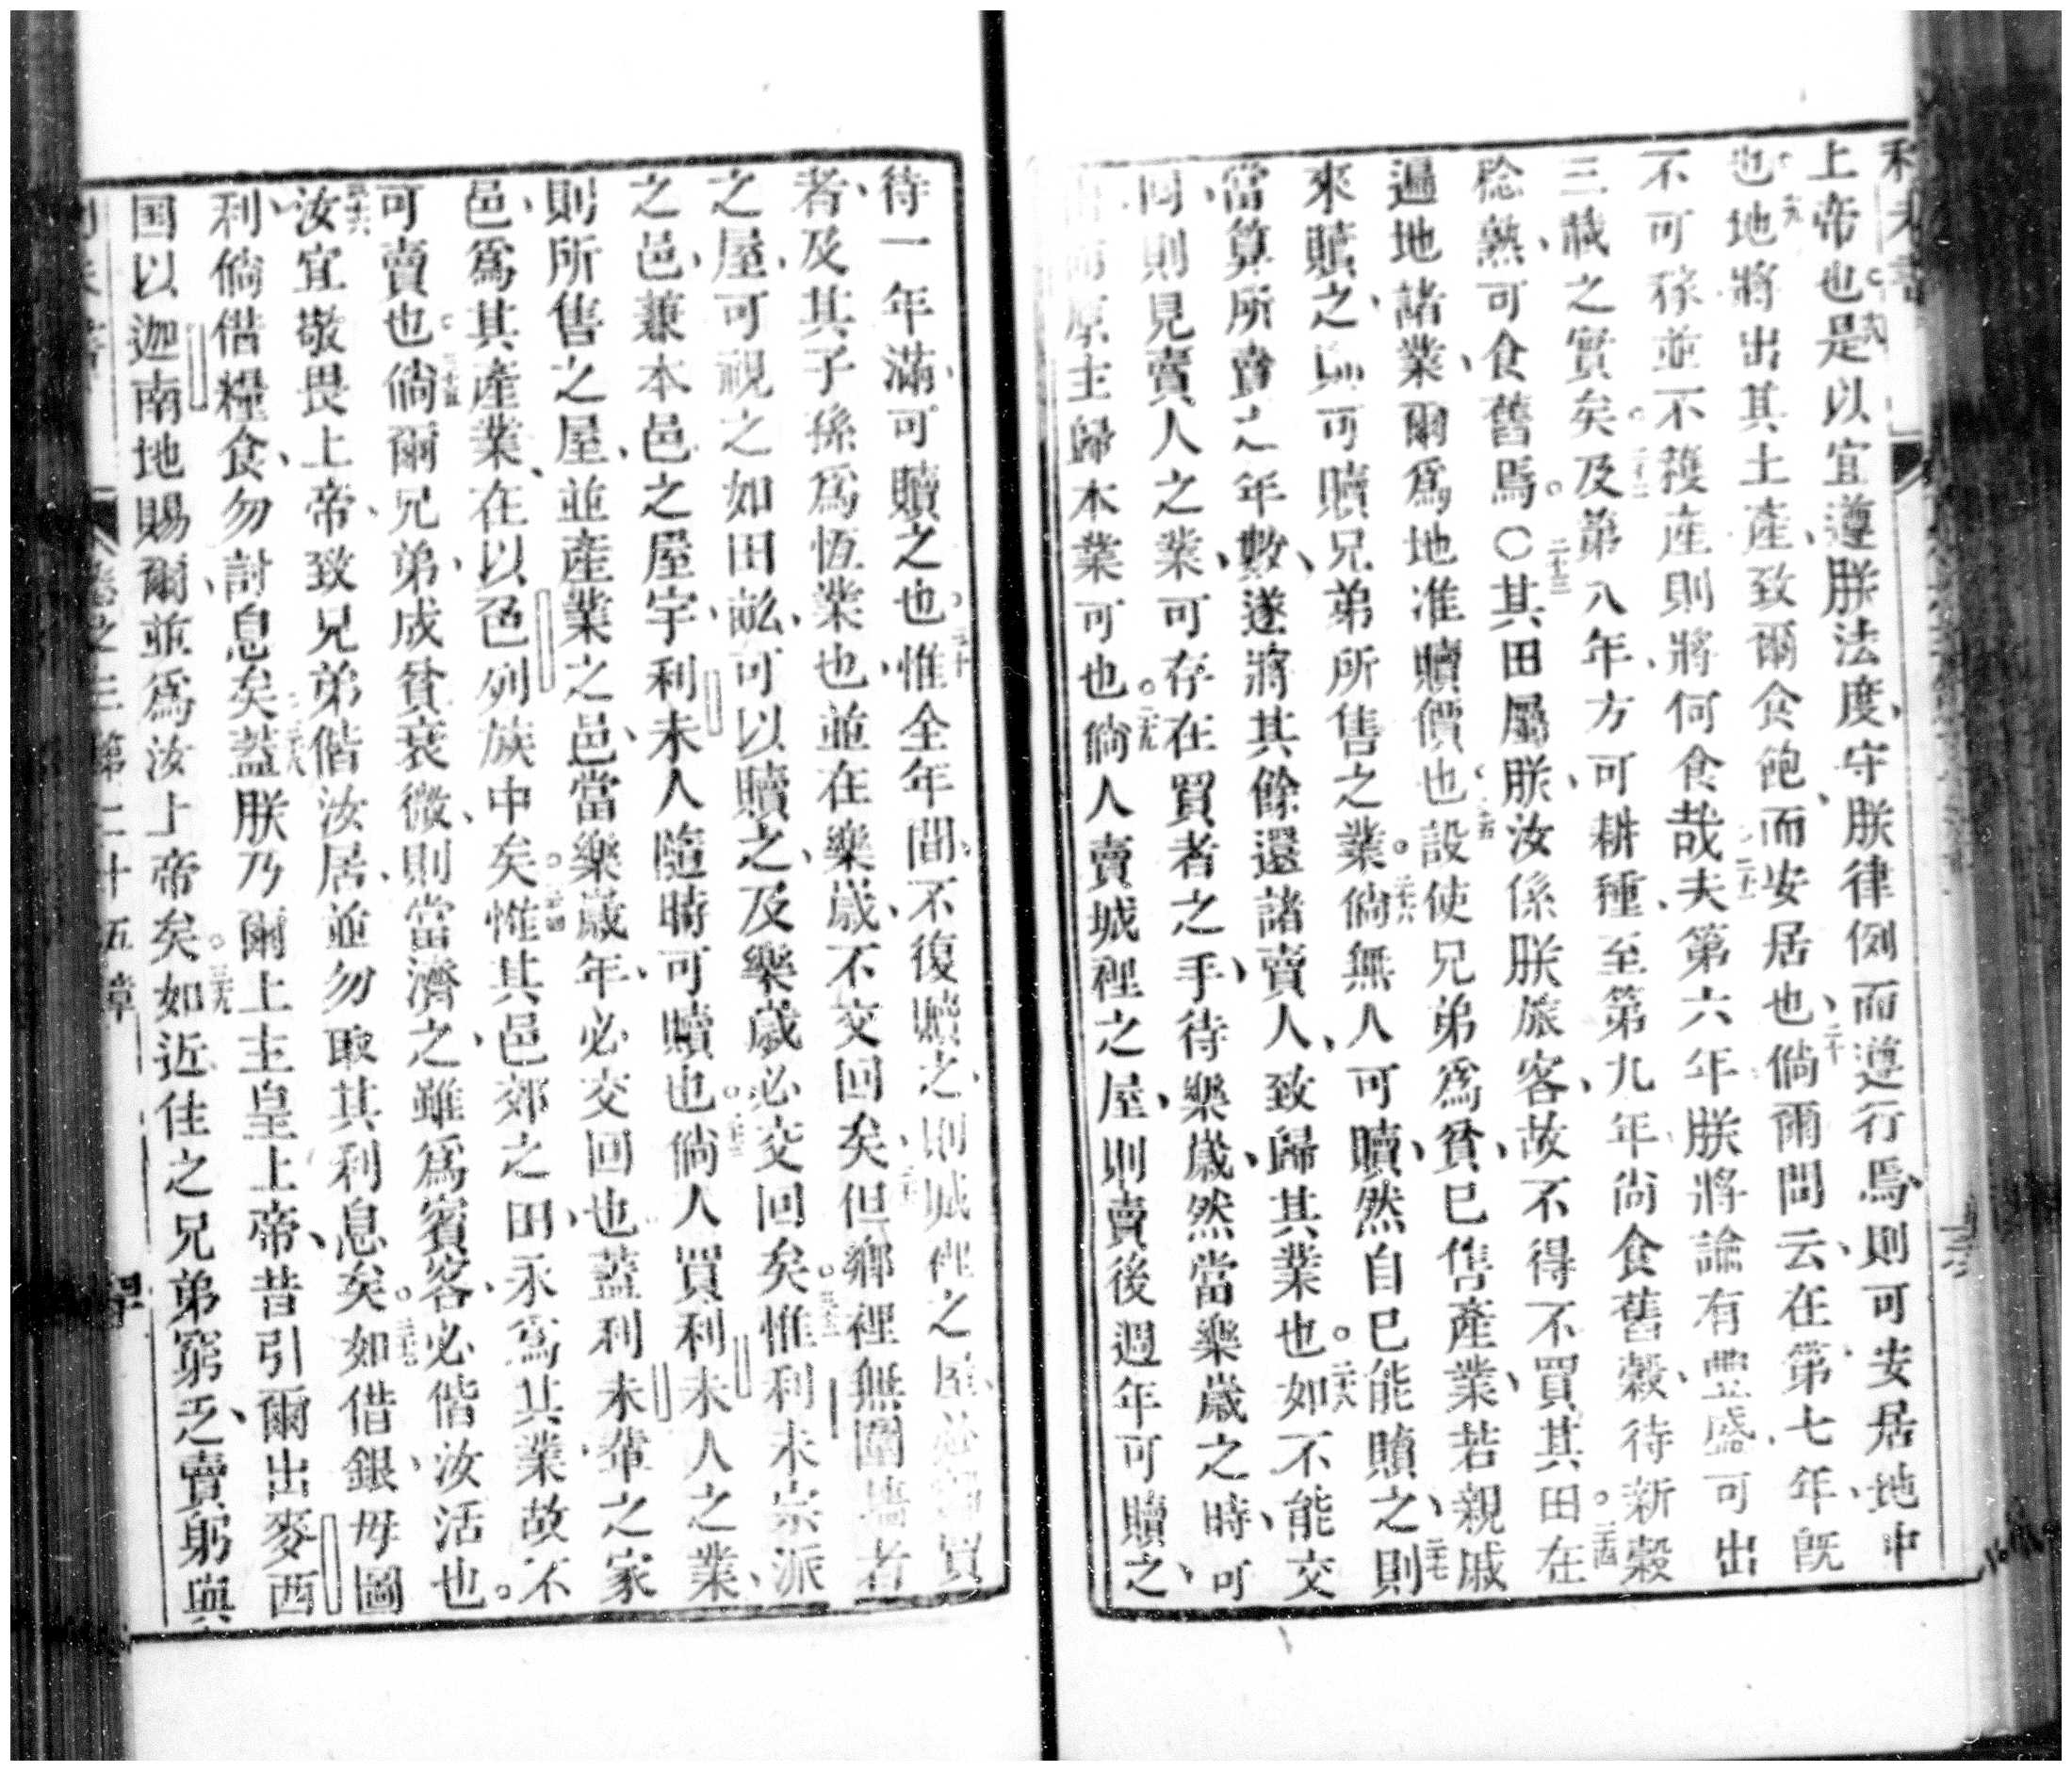 利未書
上帝也是以宜遵朕法度、守朕律例而遵行焉、則可安居地中
也。十九地將出其土產、致爾食飽、而安居也、二十倘爾問云、在第七年、既
不可稼、並不穫產、則將何食哉、二十一夫第六年、朕將諭有豐盛、可出
三載之實矣。二十二及第八年、方可耕種、至第九年、尚食舊穀、待新穀
稔熟、可食舊焉。〇二十三其田屬朕、汝係朕旅客、故不得不買其田。二十四在
遍地諸業、爾爲地准贖價也、二十五設使兄弟爲貧、已售產業、若親戚
來贖之、則可贖兄弟所售之業。二十六倘無人可贖、然自己能贖之、二十七則
當算所賣之年數、遂將其餘還諸賣人、致歸其業也。二十八如不能交
回、則見賣人之業、可存在買者之手、待樂歲、然當樂歲之時、可
原主歸本業可也。二十九倘人賣城裡之屋、則賣後週年可贖之、
待一年滿、可贖之也。三十惟全年間、不復贖之、則城裡之屋、必買
者、及其子孫爲恆業也、並在樂歲、不交回矣、但鄉裡無圍墻者
之屋、可視之如田畝、可以贖之、及樂歲必交回矣。三十二惟利未宗派
之邑、兼本邑之屋宇、利未人隨時可贖也。三十三倘人買利未人之業、
則所售之屋、並產業之邑、當樂歲年、必交回也、蓋利未輩之家
邑、爲其產業、在以色列族中矣。三十四惟其邑郊之田、永爲其業、故不
可賣也。三十五倘爾兄弟、成貧衰微、則當濟之、雖爲賓客、必偕汝活也。
三十六汝宜敬畏上帝、致兄弟偕汝居、並勿取其利息矣。三十七如借銀、毋圖
利、倘借糧食、勿討息矣、三十八蓋朕乃爾上主皇上帝、昔引爾出麥西
国、以迦南地賜爾、並爲汝上帝矣。三十九如近住之兄弟窮乏、賣躬與
利未書 卷之三第二十五章